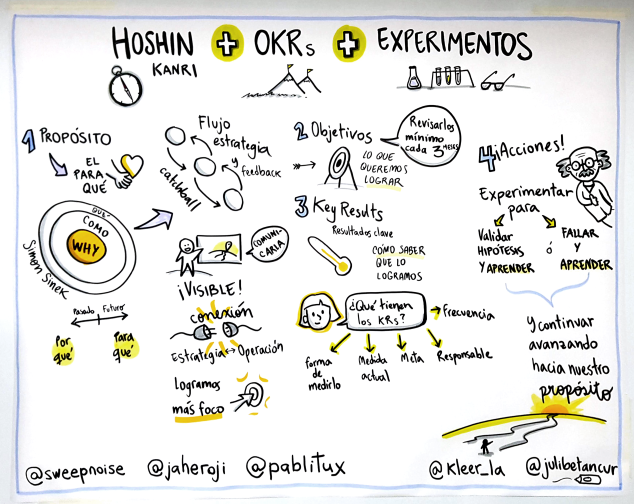 HOSHIN + OKRs + EXPERIMENTOS
KANRI
1 PROPÓSITO
EL
PARA
QUÉ
QUÉ
COMO
WHY
Simon Sinek
Pasado Futuro
Por
qué
Para
qué
Flujo
estrategia
y
feedback
catchball
COMUNI-
CARLA
¡VISIBLE!
conexión
Estrategia ↔ Operación
Logramos
más foco
2 Objetivos
Revisarlos
mínimo
cada 3 MESES
LO QUE
QUEREMOS
LOGRAR
3 Key Results
Resultados clave
CÓMO SABER
QUE LO
LOGRAMOS
¿Qué tienen
los KRs?
Frecuencia
forma
de
medirlo
Medida
actual
Meta
Responsable
4 ¡Acciones!
Experimentar
para
Validar
HIPÓTESIS
Y APRENDER
ó
FALLAR
Y
APRENDER
Y continuar
avanzando
hacia nuestro
propósito
@sweepnoise @jaheroji @pablitux @Kleer_la @julibetancur